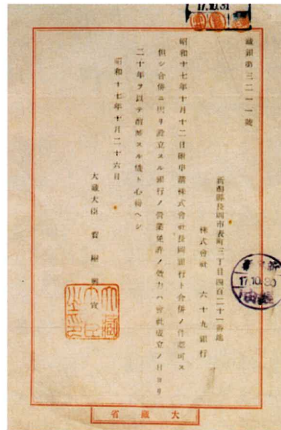 17.10.31
藏銀第三二一一號
新潟縣長岡市表町三丁目四百二十一番地
株式會社 六十九銀行
昭和十七年十月十二日附申請株式會社長岡銀行ト合併ノ件認可ス
但シ合併ニ因リ設立スル銀行ノ營業免許ノ效力ハ會社成立ノ日ヨリ
二十年ヲ以テ消滅スル儀ト心得ヘシ
昭和十七年十月二十六日
大藏大臣 賀屋興宣
大藏大臣之印
17.10.30
大藏省